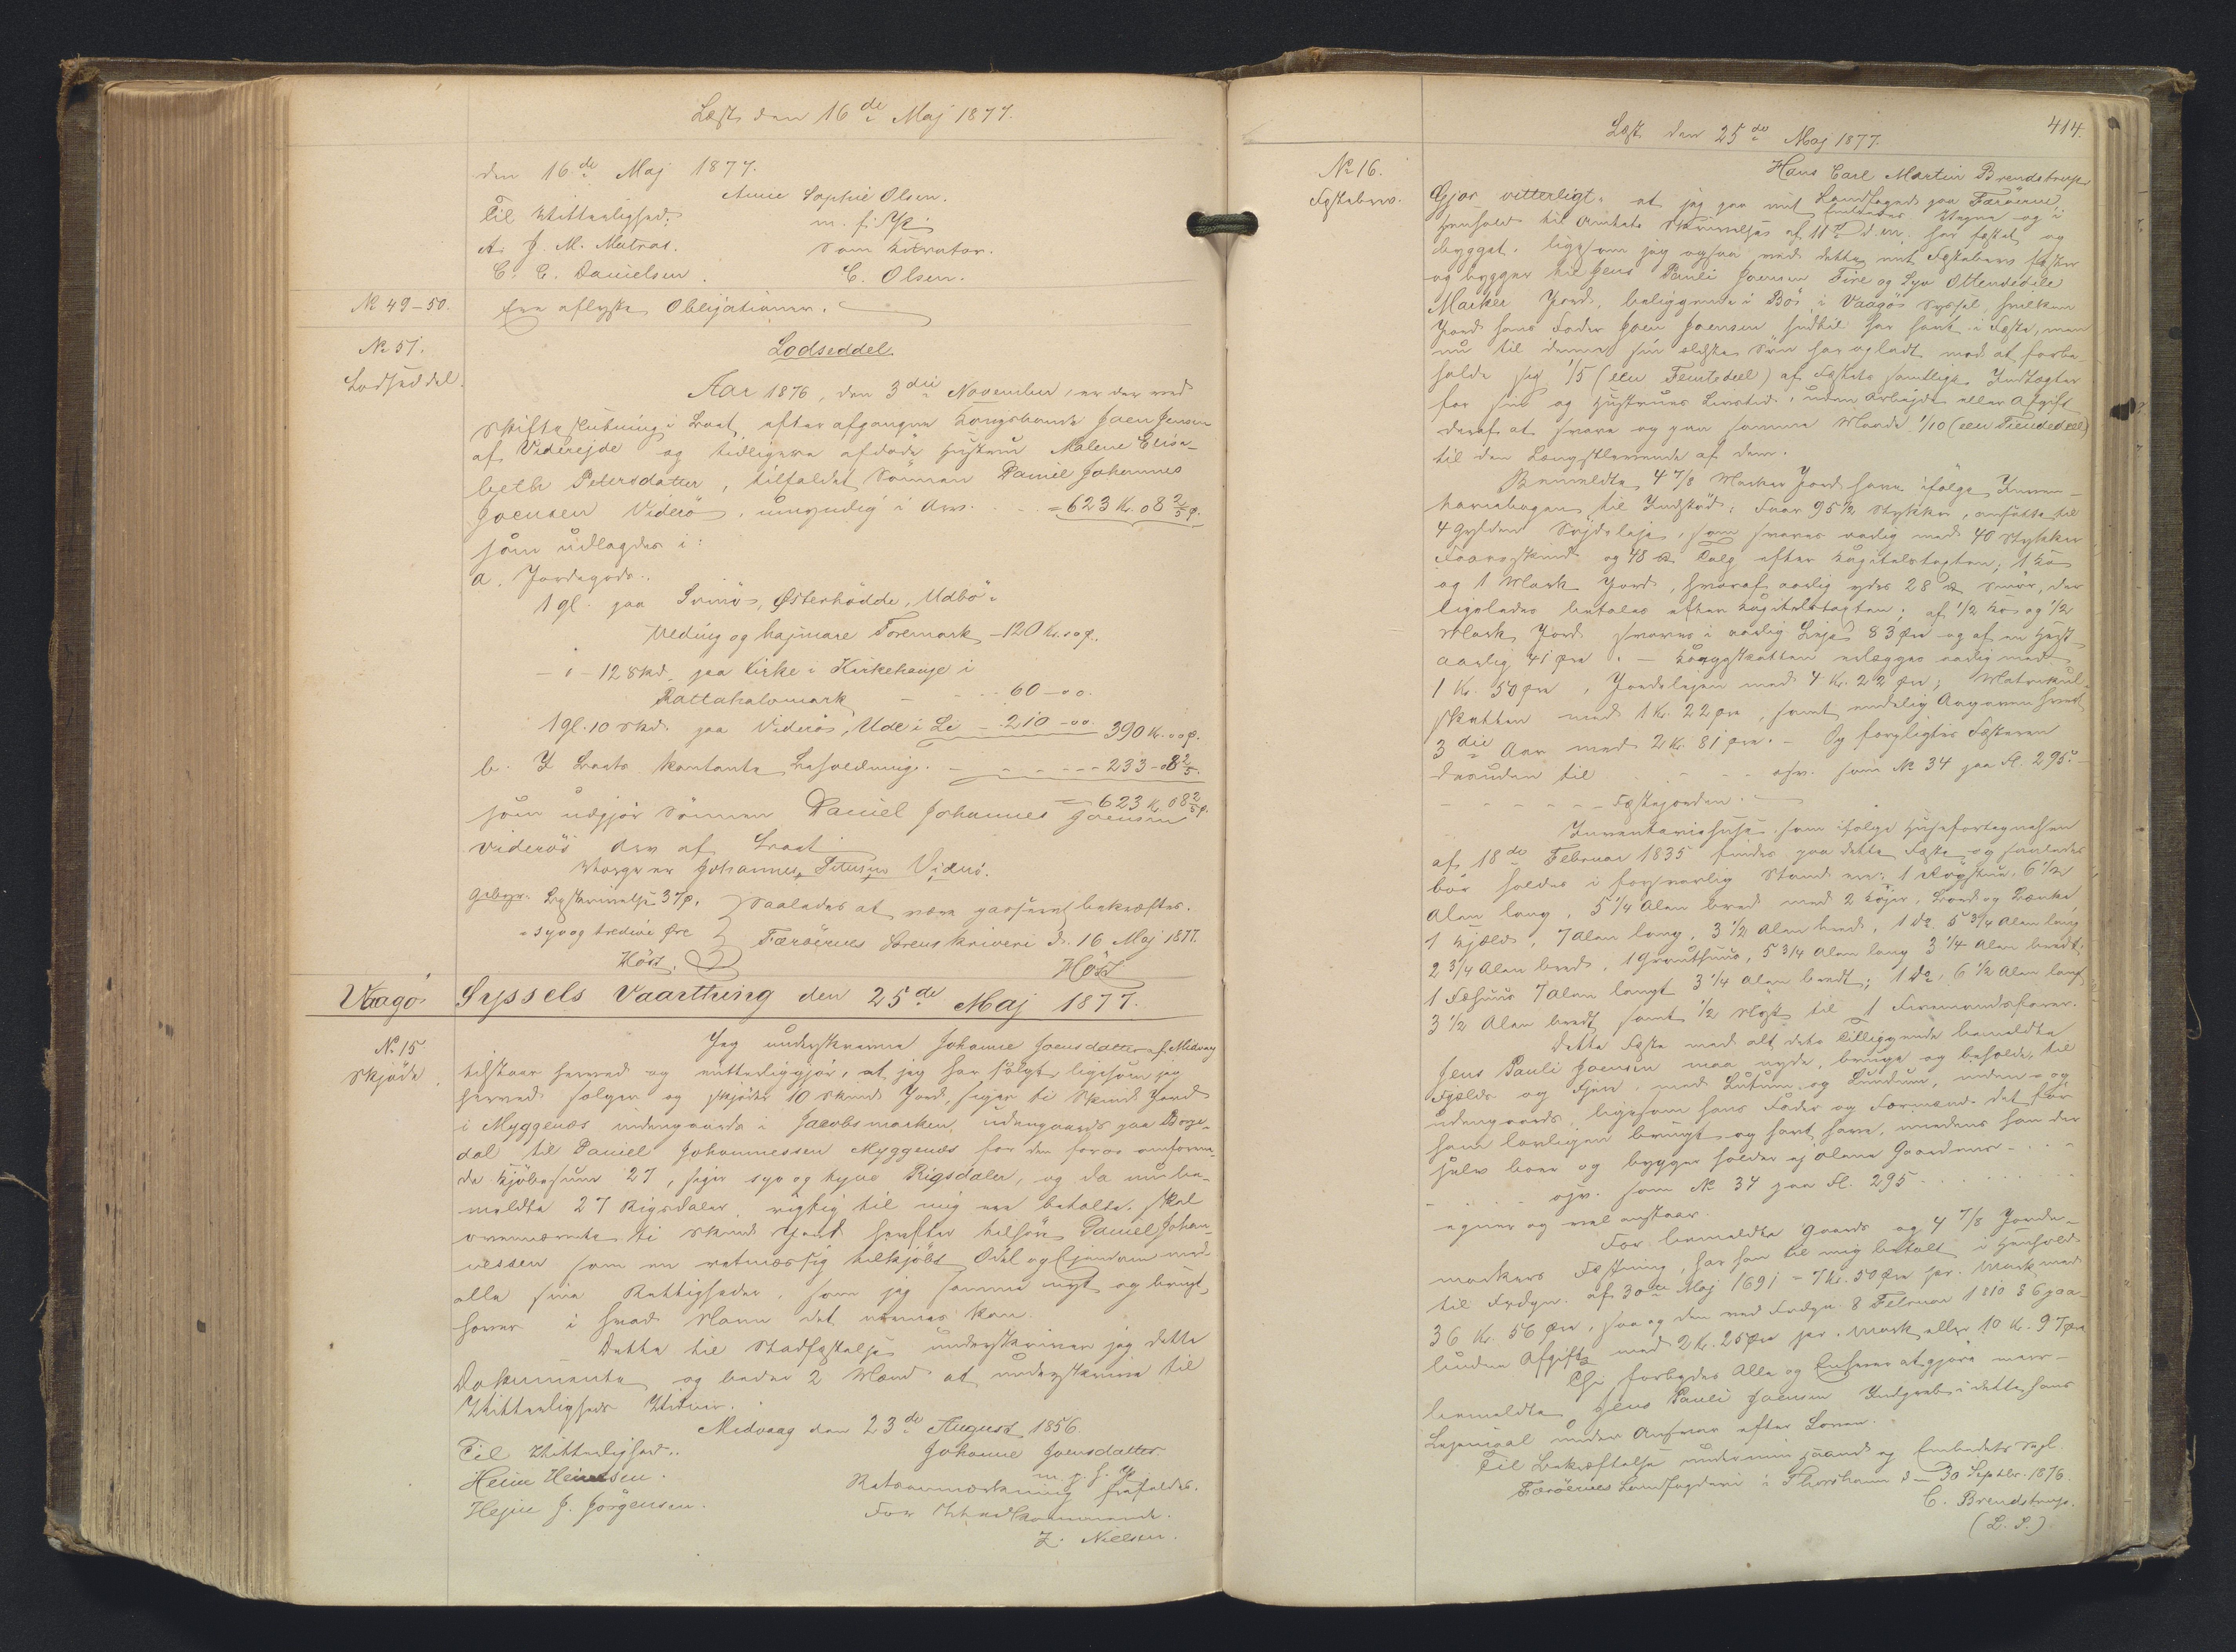 Læst den 16de Maj 1877.
den 16de Maj 1877.
Anne Sophie Olsen.
Til Vitterlighed: m. f. P.
A. J. M. Matras. som Kurator.
C. C. Danielsen. C. Olsen.
No 49-50. Ere aflyste Obligationer.
No 51. Lodseddel
Lodseddel.
Aar 1876, den 3die November, er der ved
Skifteslutning i Boet efter afgangne Kongsbonde Joen Jensen
af Viderejde og tidligere afdøde Hustru Malene Elisa-
beth Petersdatter, tilfaldet Sønnen Daniel Johannes
Joensen Viderø, umyndig i Arv. - - = 623 Kr. 08 2/5 ø.
som udlagdes i:
a. Jordegods:
1 gl. paa Svinø, Østerhødde, Udbø i
Veding og hajmare Toremark - 120 Kr. 00 ø.
- " - 12 Skd. paa Kirke i Kirkehauge i
Rattahalvmark - - - 60 - 00.
1 gl. 10 Skd. paa Viderø, Ude i Le - 210 - 00. 390 Kr. 00 ø.
b. I Boets kontante Beholdning. - - - - - 233 - 08 2/5.
= 623 Kr. 08 2/5 ø.
som udgjør Sønnen Daniel Johannes Joensen
Viderøs Arv af Boet
Værge er Johannes Petersen Viderø.
Gebyr. Beskrivelse 37 ø. Saaledes at være passeret bekræftes.
= syv og tredive Øre Færøernes Sorenskriveri d. 16 Maj 1877.
Høst. Høst
Vaagø Syssels Vaarthing den 25de Maj 1877.
No 15 Skjøde.
Jeg underskrevne Johanne Joensdatter af Midvaag
tilstaar herved og vitterliggjør, at jeg har solgt ligesom jeg
herved sælger og skjøder 10 Skind Jord, siger ti Skind Jord
i Myggenæs indengaards i Jacobsmarken, udengaards paa Borge-
dal til Daniel Johannessen Myggenæs for den foraf omforene-
de Kjøbesum 27, siger syv og tyve Rigsdaler, og da nu be-
meldte 27 Rigsdaler rigtig til mig ere betalte, skal
ovennævnte ti Skind Jord herefter tilhøre Daniel Johan-
nessen som en retmæssig tilkjøbt Odel og Ejendom med
alle sine Rettigheder, som jeg samme nydt og brugt
haver i hvad Navn det nævnes kan.
Dette til Stadfæstelse underskriver jeg dette
Dokument og beder 2 Mænd at underskrive til
Vitterligheds Vidner.
Midvaag den 23de August 1856.
Til Vitterlighed: Johanne Joensdatter
Heine Heinesen. m. f. P.
Hejne J. Jørgensen. Retsanmærkning frafaldes.
For Vedkommende.
Z. Nielsen.
414.
Læst den 25de Maj 1877.
No 16. Fæstebrev.
Hans Carl Martin Brendstrup
Landfoged paa Færøerne,
Gjør vitterligt: at jeg paa mit Embedes Vegne og i
Henhold til Amtets Skrivelse af 11te d. M. har fæstet og
bygget, ligesom jeg ogsaa ved dette mit Fæstebrev fæster
og bygger til Jens Pauli Joensen Fire og Syv Ottendedele
Marker Jord, beliggende i Bø i Vaagø Syssel, hvilken
Jord hans Fader Joen Joensen hidtil har havt i Fæste, men
nu til denne sin ældste Søn har opladt mod at forbe-
holde sig 1/5 (een Femtedeel) af Fæstets samtlige Indtægter
for sin og Hustrues Levetid, uden Arbejde eller Afgift
deraf at svare og paa samme Maade 1/10 (een Tiendedeel)
til den Længstlevende af dem.
Bemeldte 4 7/8 Marker Jord have ifølge Inven-
tariebogen til Indstød: Faar 95 1/2 Stykker, ansatte til
4 Gylden Søjdeleje, som svares aarlig med 40 Stykker
Faareskind og 48 ℔ Talg efter Kapitelstaxten; 1 Ko
og 1 Mark Jord, hvoraf aarlig ydes 28 ℔ Smør, der
ligeledes betales efter Kapitelstaxten; af 1/2 Ko og 1/2
Mark Jord svares i aarlig Leje 83 Øre og af en Hest
aarlig 41 Øre. - Kongskatten erlægges aarlig med
1 Kr. 50 Øre, Jordelejen med 4 Kr. 22 Øre; Matrikul-
skatten med 1 Kr. 22 Øre, samt endelig Angaven hvert
3die Aar med 2 Kr. 81 Øre. - Og forpligtes Fæsteren
desuden til - - - osv. som No 34 paa Fl. 295. -
- - - - - - Fæstejorden.
Inventariehuse, som ifølge Husefortegnelsen
af 18de Februar 1835 findes paa dette Fæste og saaledes
bør holdes i forsvarlig Stand ere: 1 Røgstue, 6 1/2
Alen lang, 5 1/4 Alen bred med 2 Køjer, Bord og Bænke,
1 Hjeld, 7 Alen lang, 3 1/2 Alen bred, 1 do. 5 3/4 Alen lang
2 3/4 Alen bred, 1 Grønthuus, 5 3/4 Alen lang 3 1/4 Alen bredt,
1 Fæhuus 7 Alen langt 3 1/4 Alen bredt; 1 do. 6 1/2 Alen langt
3 1/2 Alen bredt samt 1/2 Nøst til 1 Firemandsfarer.
Dette Fæste med alt dets Tilliggende bemeldte
Jens Pauli Joensen maa nyde, bruge og beholde til
Fjelds og Fjære, med Lutum og Lundum, inden- og
udengaards, ligesom hans Fader og Formænd det før
ham lovligen brugt og havt have, imedens han der
selv boer og bygger holder ej alene Gaardens - - -
- - - osv. som No 34 paa Fl. 295 - - - - - -
egner og vel anstaar.
For bemeldte Gaards og 4 7/8 Jorde-
markers Fæstning, har han til mig betalt i Henhold
til Frdgn. af 30te Maj 1691 = 7 Kr. 50 Øre pr. Mark med
36 Kr. 56 Øre, saa og den ved Frdgn. 8 Februar 1810 § 6 paa-
budne Afgift med 2 Kr. 25 Øre pr. Mark eller 10 Kr. 97 Øre
Thi forbydes Alle og Enhver at gjøre meer-
bemeldte Jens Pauli Joensen Indgreb i dette hans
Lejemaal under Ansvar efter Loven.
Til Bekræftelse under min Haand og Embedets Segl.
Færøernes Landfogderi i Thorshavn d. 30 Septbr. 1876.
C. Brendstrup.
(L. S.)